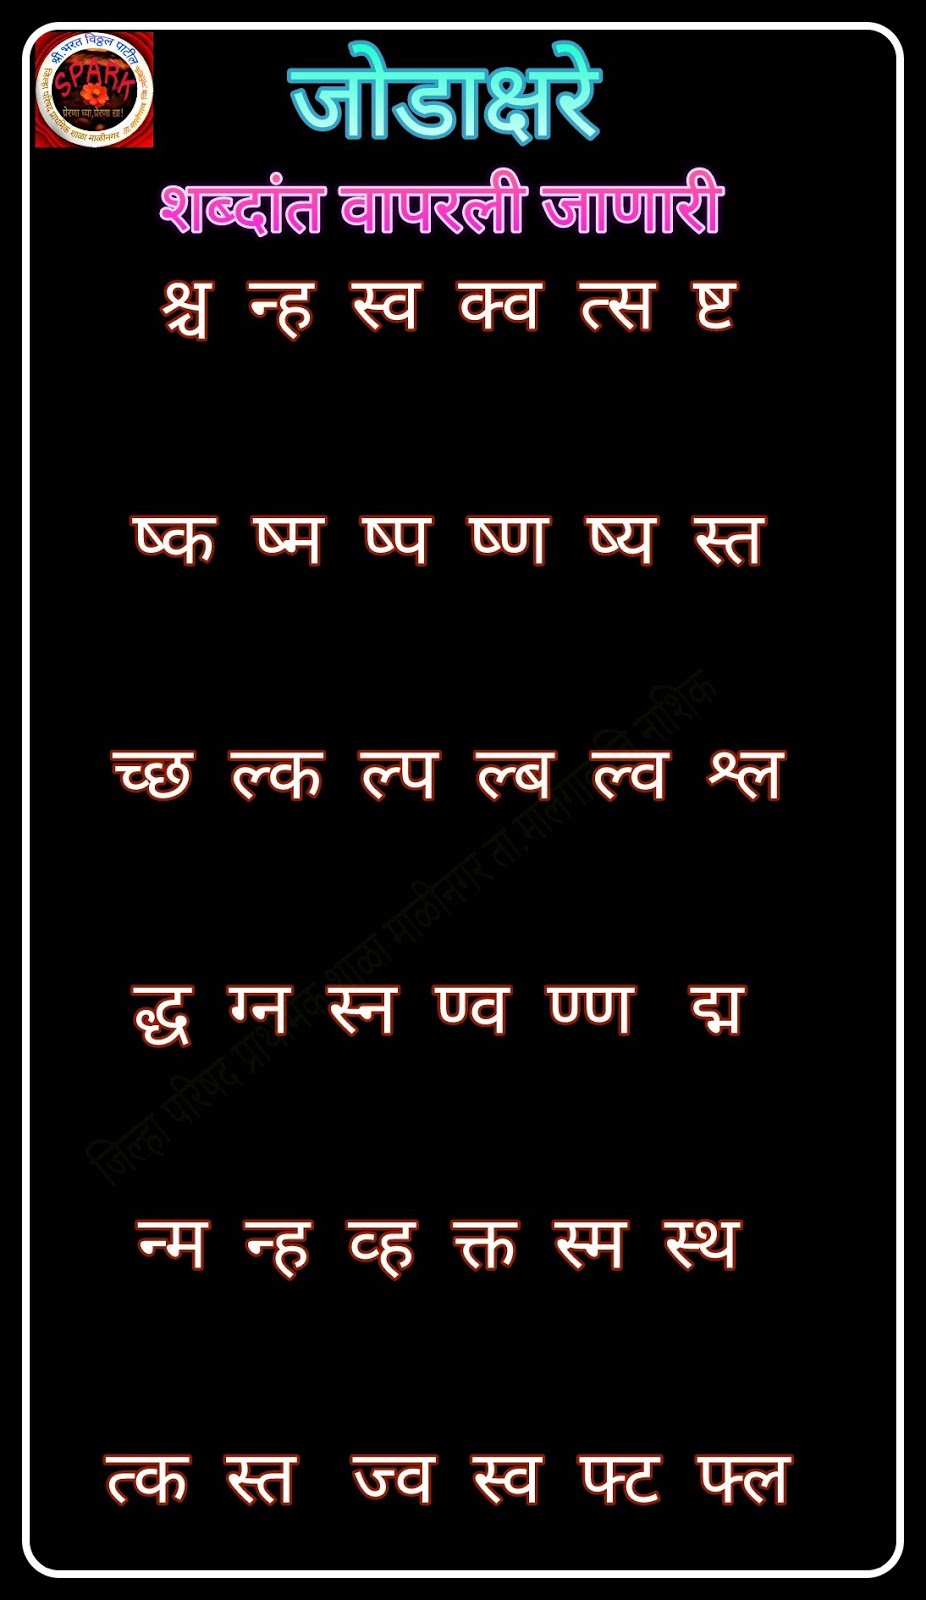 श्री.भरत विठ्ठल पाटील
SPARK
प्रेरणा घ्या,प्रेरणा द्या!
जिल्हा परिषद प्राथमिक शाळा माळीनगर
जोडाक्षरे
शब्दांत वापरली जाणारी
श्च न्ह स्व क्व त्स ष्ट
ष्क ष्म ष्प ष्ण ष्य स्त
च्छ ल्क ल्प ल्ब ल्व श्ल
द्ध ग्न स्न ण्व ण्ण द्म
न्म न्ह व्ह क्त स्म स्थ
त्क स्त ज्व स्व फ्ट फ्ल
जिल्हा परिषद प्राथमिक शाळा माळीनगर ता.मालेगाव जि नाशिक